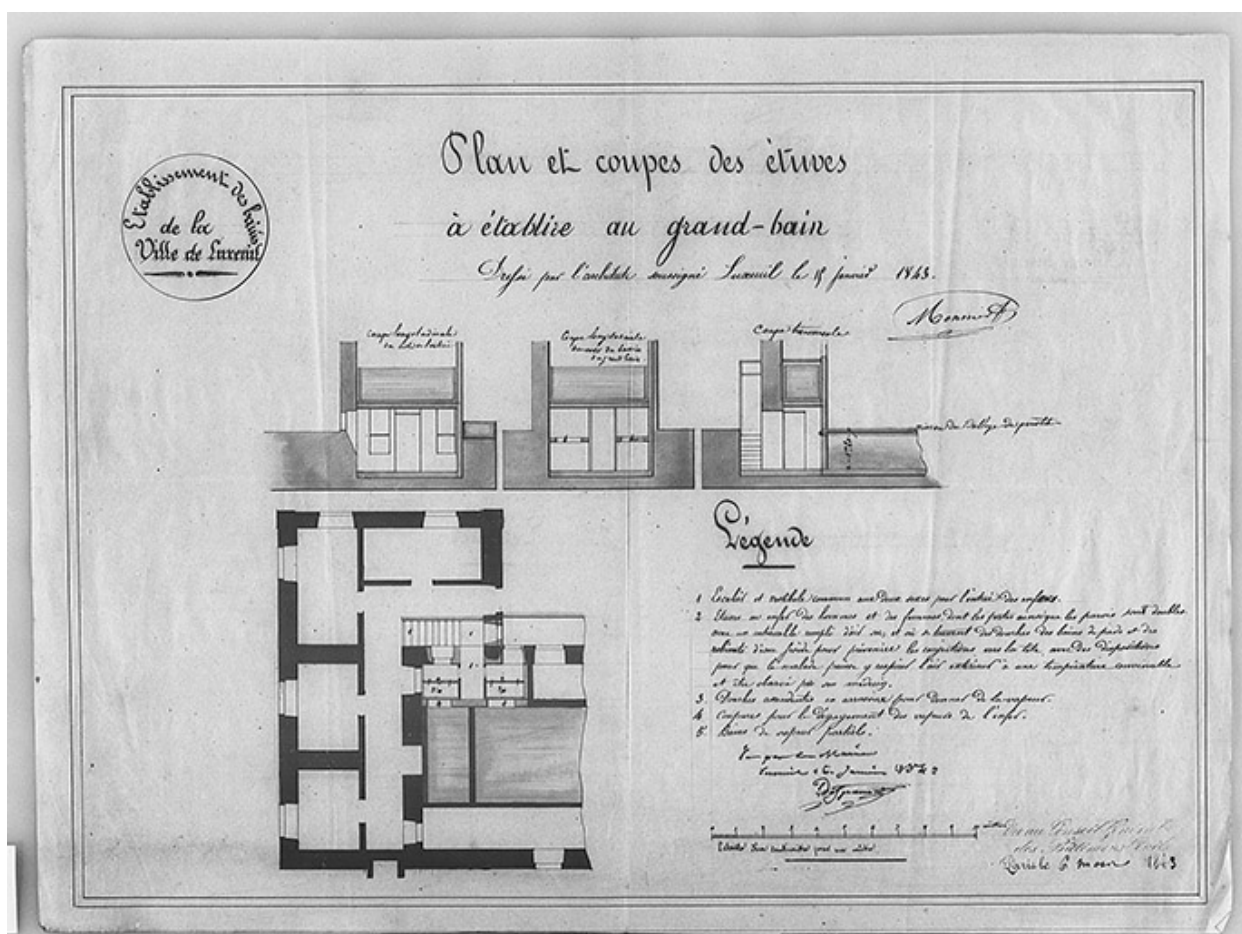 Etablissement des bains
de la
Ville de Luxeuil
Plan et coupes des étuves
à établire au grand-bain
Dressé par l'architecte soussigné Luxeuil le 15 janvier 1843.
Coupe longitudinale
Coupe longitudinale
Coupe transversale
niveau du dallage
Légende
1 Escalier et vestibule commun aux deux sexes pour l'entrée des enfers.
2 Etuves ou enfer des hommes et des femmes dont les portes ainsique les parois sont doubles
avec un intervalle rempli d'air, et où se trouvent des douches des bains de pieds et des
robinets d'eau froide pour prévenir les congestions vers la tête, avec des dispositions
pour que le malade puisse y respirer l'air extérieur à une température convenable
et être observé par son médecin.
3 Douches ascendantes pour donner de la vapeur.
4 Coupures pour le dégagement des vapeurs de l'enfer.
5 Bains de vapeur partiels.
Vu par le Maire
Luxeuil janvier
Echelle d'un centimètre pour un mètre.
Vu au Conseil
des Bâtiments Civils
Paris le 6 mars 1843